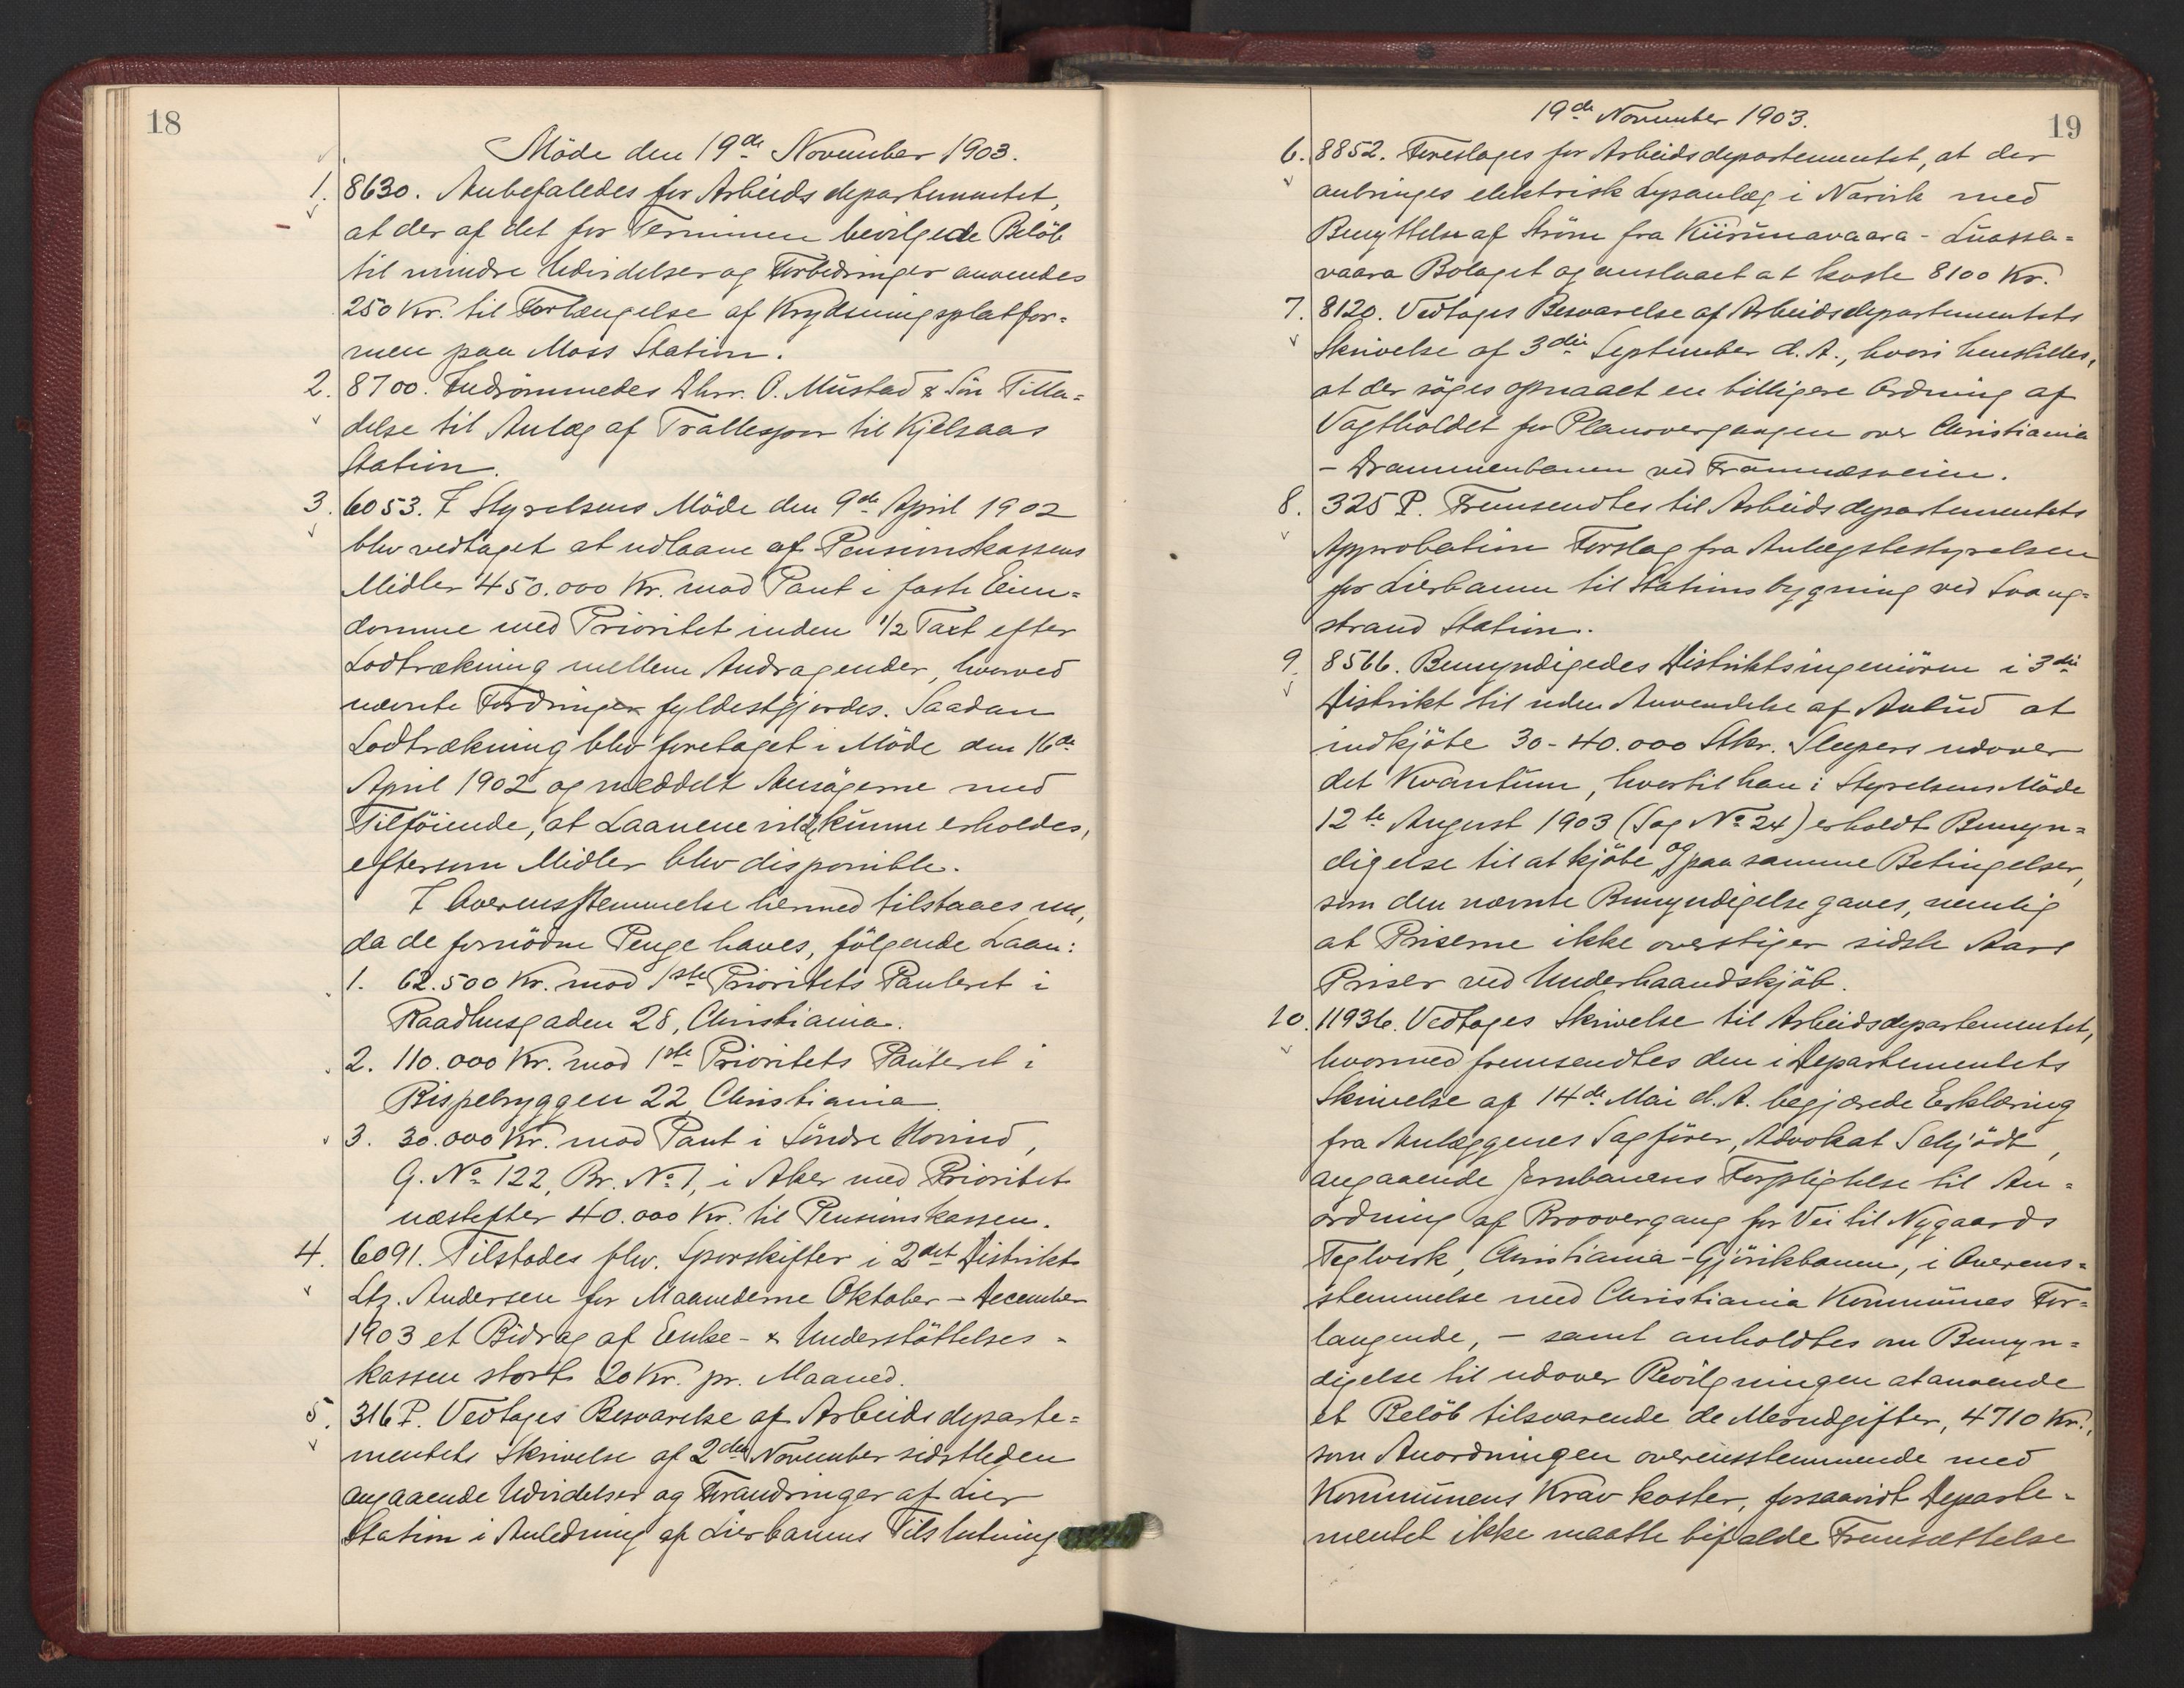 18
Möde den 19de November 1903.
1. 8630. Anbefaledes for Arbeidsdepartementet,
at der af det for Terminen bevilgede Belöb
til mindre Udvidelser og Forbedringer anvendes
250 Kr. til Forlængelse af Krydsningsplatfor-
men paa Moss Station.
2. 8700. Indrömmedes Dhrr. O. Mustad & Sön Tilla-
delse til Anlæg af Trallespor til Kjelsaas
Station.
3. 6053. I Styrelsens Möde den 9de April 1902
blev vedtaget at udlaane af Pensionskassens
Midler 450.000 Kr. mod Pant i faste Eien-
domme med Prioritet inden 1/2 Taxt efter
Lodtrækning mellem Andragender, hvorved
nævnte Fordringer fyldestgjordes. Saadan
Lodtrækning blev foretaget i Möde den 16de
April 1902 og meddelt Ansögerne med
Tilföiende, at Laanene vilde kunne erholdes,
eftersom Midler blev disponible.
I Overensstemmelse hermed tilstaaes nu,
da de fornödne Penge haves, fölgende Laan:
1. 62.500 Kr. mod 1ste Prioritets Panteret i
Raadhusgaden 28, Christiania.
2. 110.000 Kr. mod 1ste Prioritets Panteret i
Bispebryggen 22, Christiania.
3. 30.000 Kr. mod Pant i Söndre Hovind,
G. No 122, Br. No 1, i Aker med Prioritet
næstefter 40.000 Kr. til Pensionskassen.
4. 6091. Tilstodes flv. Sporskifter i 2det Distrikt
Ltz. Andersen for Maanederne Oktober - December
1903 et Bidrag af Enke- & Understöttelses-
kassen stort 20 Kr. pr. Maaned.
5. 316 P. Vedtoges Besvarelse af Arbeidsdeparte-
mentets Skrivelse af 2den November sidstleden
angaaende Udvidelser og Forandringer af Lier
Station i Anledning af Lierbanens Tilslutning
19de November 1903.
19
6. 8852. Foresloges for Arbeidsdepartementet, at der
anbringes elektrisk Lysanlæg i Narvik med
Benyttelse af Ström fra Kiirunavaara - Luossa-
vaara Bolaget og anslaaet at koste 8100 Kr.
7. 8120. Vedtoges Besvarelse af Arbeidsdepartementets
Skrivelse af 3die September d. A., hvori henstilles,
at der söges opnaaet en billigere Ordning af
Vagtholdet for Planovergangen over Christiania
- Drammenbanen ved Framnæsveien.
8. 325 P. Fremsendtes til Arbeidsdepartementets
Approbation Forslag fra Anlægsbestyrelsen
for Lierbanen til Stationsbygning ved Svang-
strand Station.
9. 8566. Bemyndigedes Distriktsingeniören i 3die
Distrikt til uden Anvendelse af Anbud at
indkjöbe 30-40.000 Stkr. Sleepers udover
det Kvantum, hvortil han i Styrelsens Möde
12te August 1903 (Sag No 24) erholdt Bemyn-
digelse til at kjöbe og paa samme Betingelser,
som den nævnte Bemyndigelse gaves, nemlig
at Priserne ikke overstiger sidste Aars
Priser ved Underhaandskjöb.
10. 11936. Vedtoges Skrivelse til Arbeidsdepartementet,
hvormed fremsendtes den i Departementets
Skrivelse af 14de Mai d. A. begjærede Erklæring
fra Anlæggenes Sagförer, Advokat Schjödt,
angaaende Jernbanens Forpligtelse til An-
ordning af Broovergang for Vei til Nygaards
Teglverk, Christiania-Gjövikbanen, i Overens-
stemmelse med Christiania Kommunes For-
langende, - samt anholdtes om Bemyn-
digelse til udover Bevilgningen at anvende
et Belöb tilsvarende de Merudgifter, 4710 Kr.,
som Anordningen overensstemmende med
Kommunens Krav koster, forsaavidt Departe-
mentet ikke maatte bifalde Fremsættelse